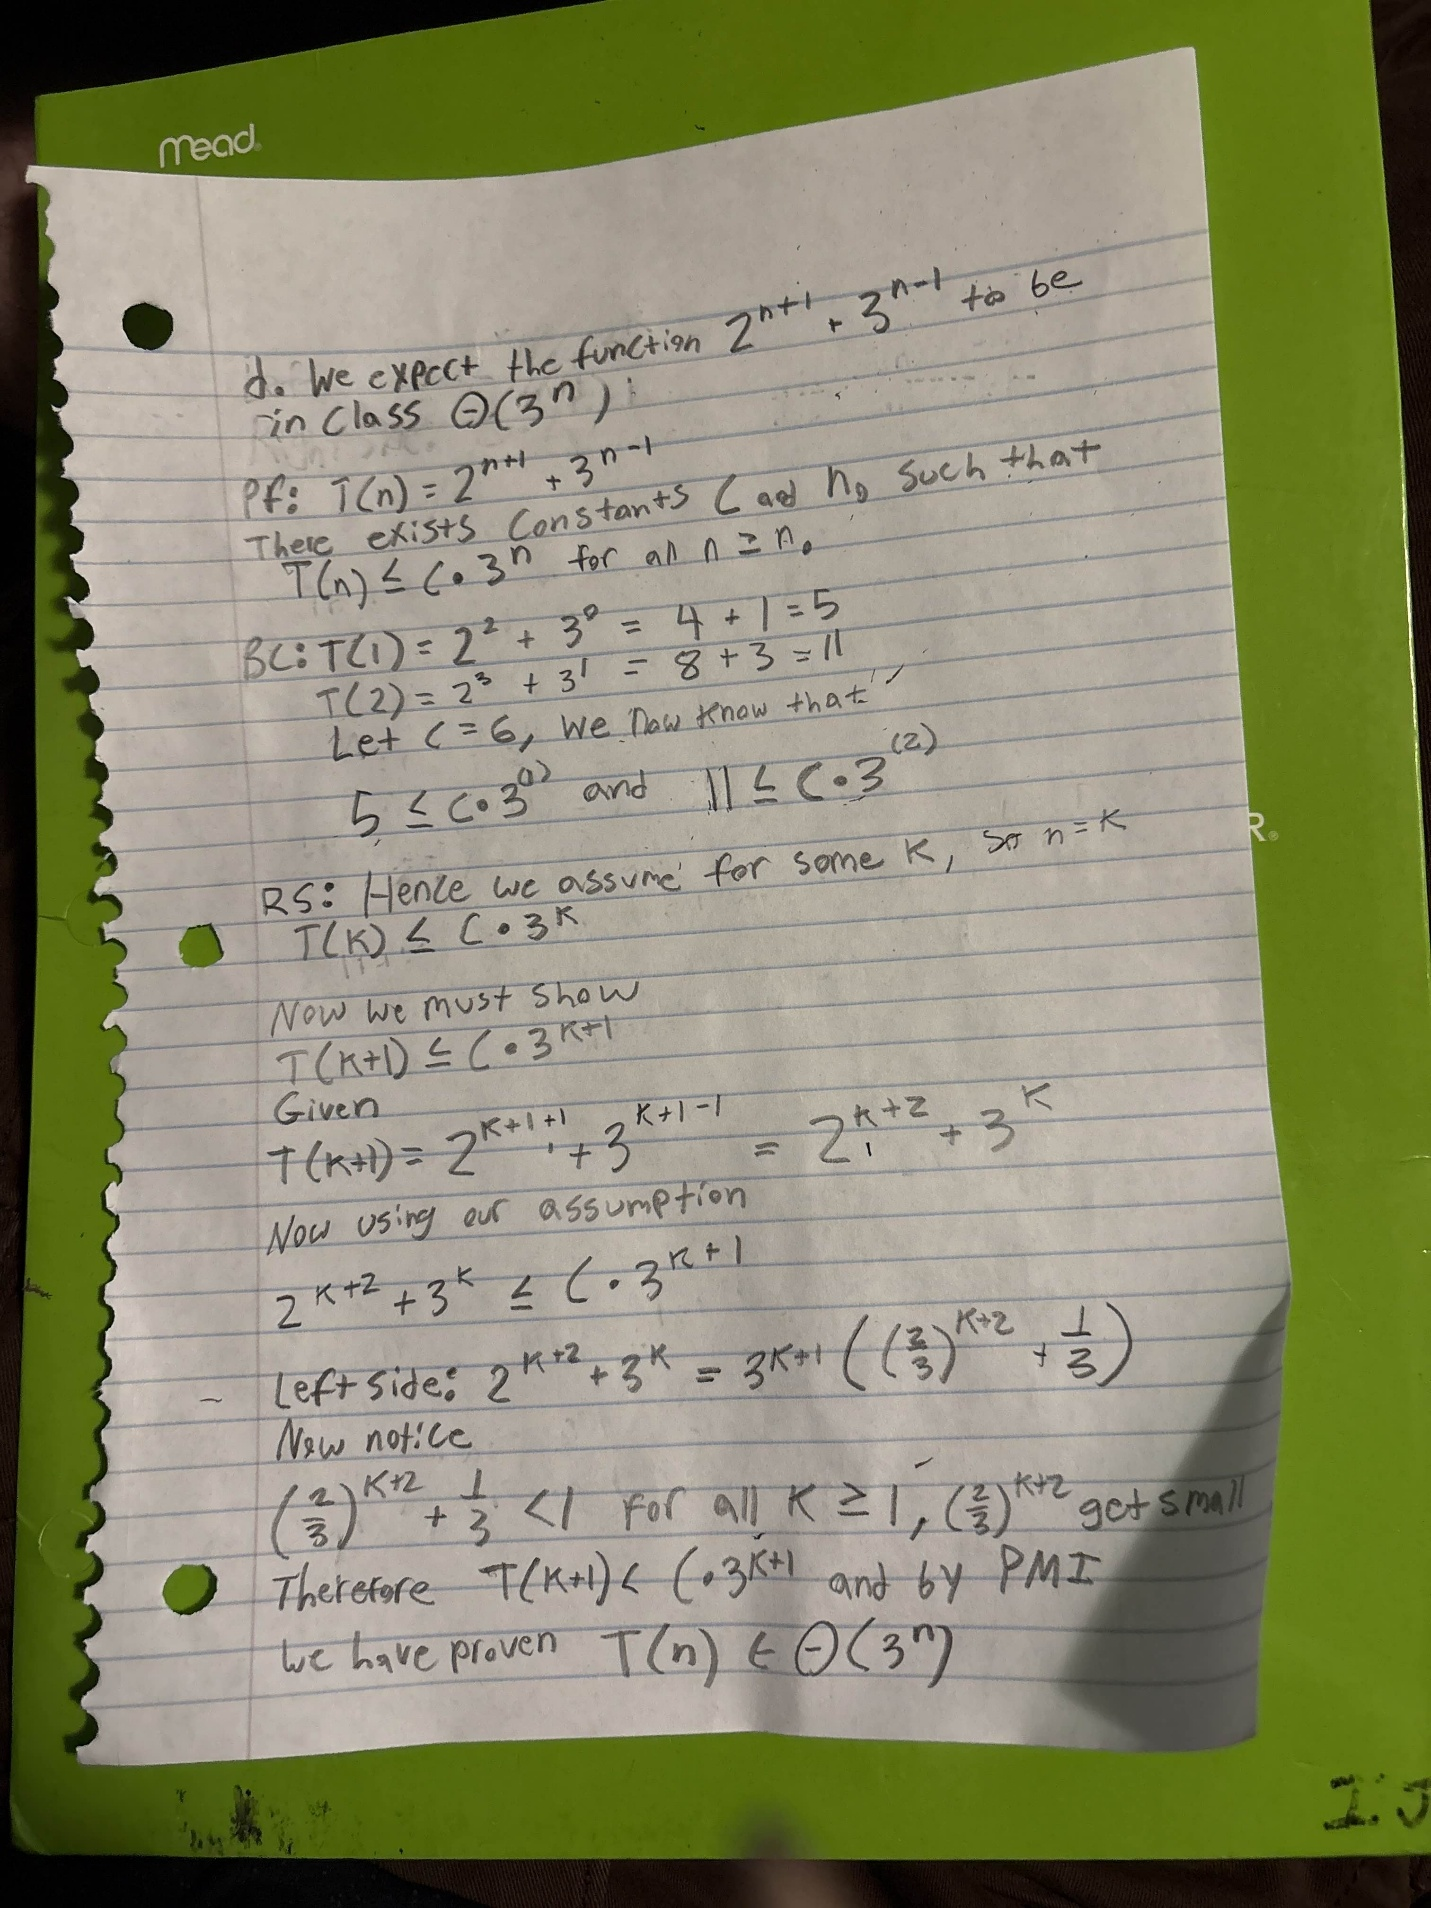 mead
d. We expect the function 2^{n+1} + 3^{n-1} to be
in class Θ(3^n)
Pf: T(n) = 2^{n+1} + 3^{n-1}
There exists constants C and n₀ such that
T(n) ≤ C • 3^n for all n ≥ n₀
BC: T(1) = 2² + 3⁰ = 4 + 1 = 5
T(2) = 2³ + 3¹ = 8 + 3 = 11
Let C = 6, we now know that
5 ≤ C • 3^{(1)} and 11 ≤ C • 3^{(2)}
R.
RS: Hence we assume for some K, so n = K
T(K) ≤ C • 3^K
Now we must show
T(K+1) ≤ C • 3^{K+1}
Given
T(K+1) = 2^{K+1+1} + 3^{K+1-1} = 2^{K+2} + 3^K
Now using our assumption
2^{K+2} + 3^K ≤ C • 3^{K+1}
Left side: 2^{K+2} + 3^K = 3^{K+1} ((2/3)^{K+2} + 1/3)
Now notice
(2/3)^{K+2} + 1/3 < 1 for all K ≥ 1, (2/3)^{K+2} get small
Therefore T(K+1) < C • 3^{K+1} and by PMI
we have proven T(n) ∈ Θ(3^n)
I. J